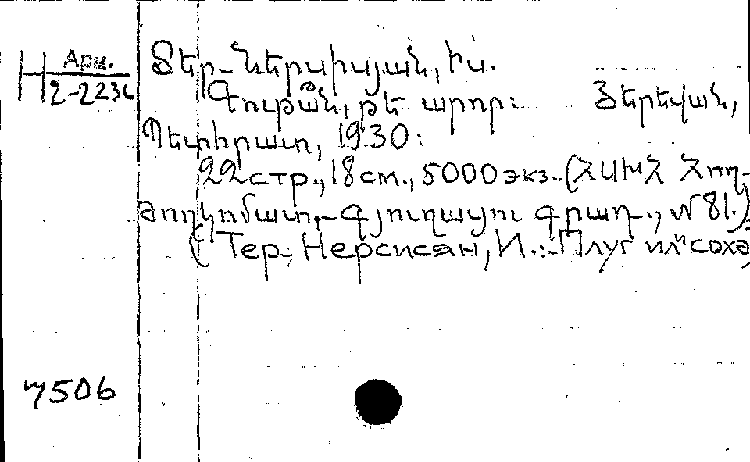 Н Арм. 2-2236
Տեր-Ներսիսյան, Խս.
Գութան, թե արոր: Յերեվան,
Պետհրատ, 1930:
22 стр., 18 см., 5000 экз. (ՀՍԽՀ Հող-
ժողկոմատ. Գյուղատն. գրադ., № 81.)
(Тер-Нерсисян, И.: Плуг или соха
7506